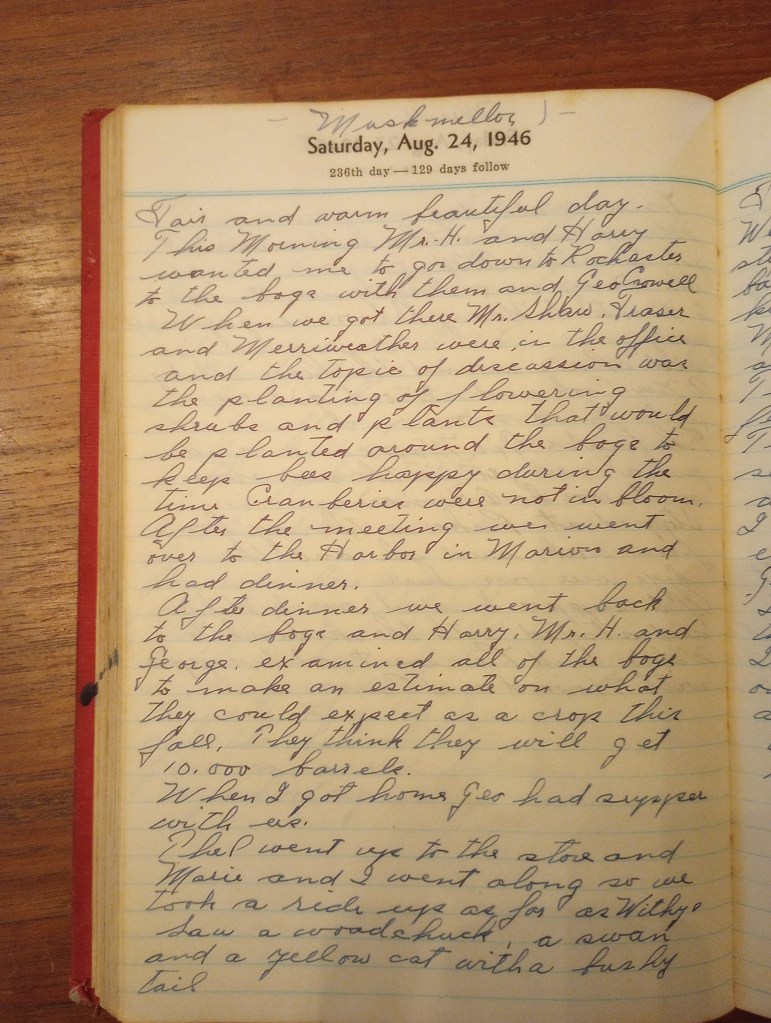 - Muskmellos ) -
Saturday, Aug. 24, 1946
236th day — 129 days follow
Fair and warm beautiful day.
This Morning Mr. H. and Harry
wanted me to go down to Rochester
to the bogs with them and Geo Crowell
When we got there Mr. Shaw, Fraser
and Merriweather were in the office
and the topic of discussion was
the planting of flowering
shrubs and plants that would
be planted around the bogs to
keep bees happy during the
time Cranberies were not in bloom.
After the meeting we went
over to the Harbor in Marion and
had dinner.
After dinner we went back
to the bogs and Harry, Mr. H. and
George. examined all of the bogs
to make an estimate on what
they could expect as a crop this
fall. They think they will get
10.000 barrels.
When I got home Geo had supper
with us.
Phel went up to the store and
Marie and I went along so we
took a ride up as far as
Saw a woodchuck, a swan
and a yellow cat with a bushy
tail